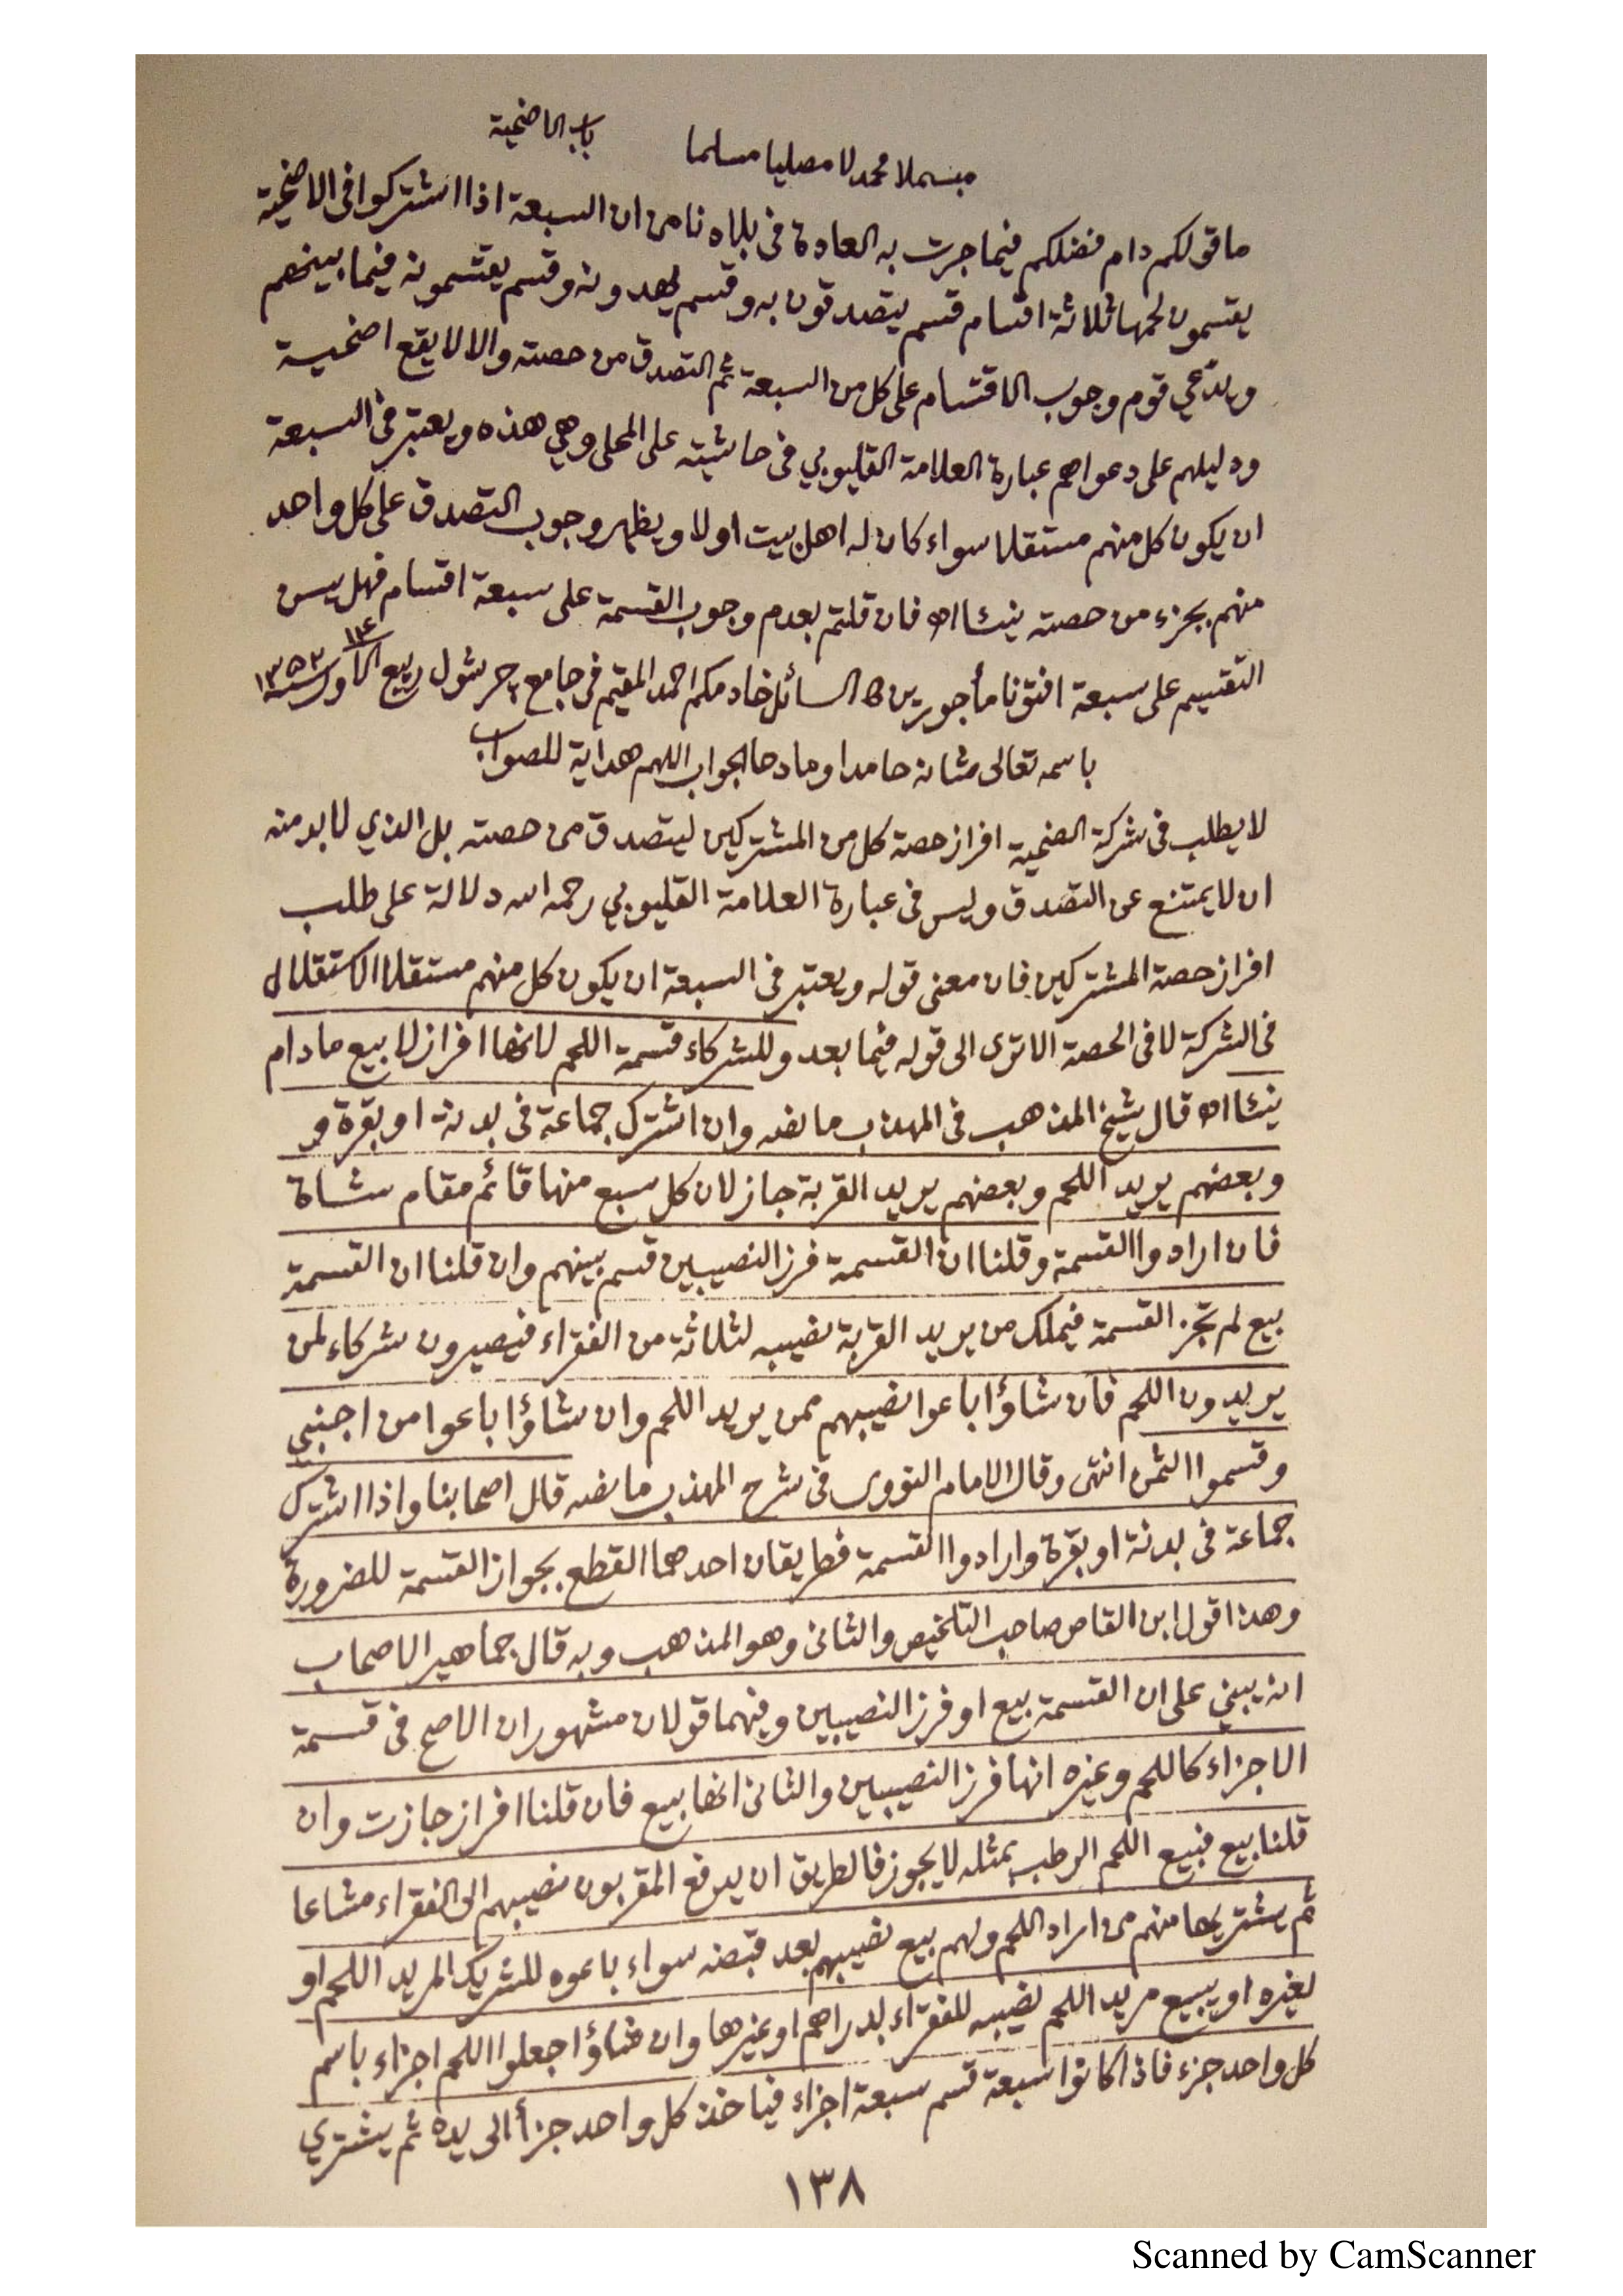 باب الاضحية
مبسملا محمدلا مصليا مسلما
ما قولكم دام فضلكم فيما جرت به العادة في بلادنا من ان السبعة اذا اشتركوا في الاضحية
يقسمون لحمها ثلاثة اقسام قسم يتصدقون به وقسم يهدونه وقسم يقتسمونه فيما بينهم
ويدّعي قوم وجوب الاقتسام على كل من السبعة ثم التصدق من حصته والا لا يقع اضحية
ودليلهم على دعواهم عبارة العلامة القليوبي في حاشيته على المحلى وهي هذه ويعتبر في السبعة
ان يكون كل منهم مستقلا سواء كان له اهل بيت او لا ويظهر وجوب التصدق على كل واحد
منهم بجزء من حصته نيئا اه فان قلتم بعدم وجوب القسمة على سبعة اقسام فهل يسن
التقسيم على سبعة افتونا مأجورين السائل خادمكم احمد المقيم في جامع ربيع الاول سنة ١٣٥٢
باسمه تعالى شانه حامدا ومادحا الجواب اللهم هداية للصواب
لا يطلب في شركة الضحية افراز حصة كل من المشتركين ليتصدق من حصته بل الذي لا بد منه
ان لا يمتنع عن التصدق وليس في عبارة العلامة القليوبي رحمه الله دلالة على طلب
افراز حصة المشتركين فان معنى قوله ويعتبر في السبعة ان يكون كل منهم مستقلا الاستقلال
في الشركة لا في الحصة الا ترى الى قوله فيما بعد وللشركاء قسمة اللحم لانها افراز لا بيع مادام
نيئا اه قال شيخ المذهب في المهذب ما نصه وان اشترك جماعة في بدنة او بقرة و
وبعضهم يريد اللحم وبعضهم يريد القربة جاز لان كل سبع منها قائم مقام شاة
فان ارادوا القسمة وقلنا ان القسمة فرز النصيبين قسم بينهم وان قلنا ان القسمة
بيع لم تجز القسمة فيملك من يريد القربة نصيبه لثلاثة من الفقراء فيصيرون شركاء لمن
يريدون اللحم فان شاؤا باعوا نصيبهم ممن يريد اللحم وان شاؤا باعوا من اجنبي
وقسموا الثمن انتهى وقال الامام النووى في شرح المهذب ما نصه قال اصحابنا واذا اشترك
جماعة في بدنة او بقرة وارادوا القسمة فطريقان احدهما القطع بجواز القسمة للضرورة
وهذا قول ابن القاص صاحب التلخيص والثاني وهو المذهب وبه قال جماهير الاصحاب
انه يبني على ان القسمة بيع او فرز النصيبين وفيهما قولان مشهوران الاصح في قسمة
الاجزاء كاللحم وغيره انها فرز النصيبين والثاني انها بيع فان قلنا افراز جازت وان
قلنا بيع فبيع اللحم الرطب بمثله لا يجوز فالطريق ان يدفع المقربون نصيبهم الى الفقراء مشاعا
ثم يشتريها منهم من اراد اللحم ولهم بيع نصيبهم بعد قبضه سواء باعوه للشريك المريد اللحم او
لغيره او يبيع مريد اللحم نصيبه للفقراء بدراهم او غيرها وان شاؤا جعلوا اللحم اجزاء باسم
كل واحد جزء فاذا كانوا سبعة قسم سبعة اجزاء فيأخذ كل واحد جزأ الى يده ثم يشتري
١٣٨
Scanned by CamScanner